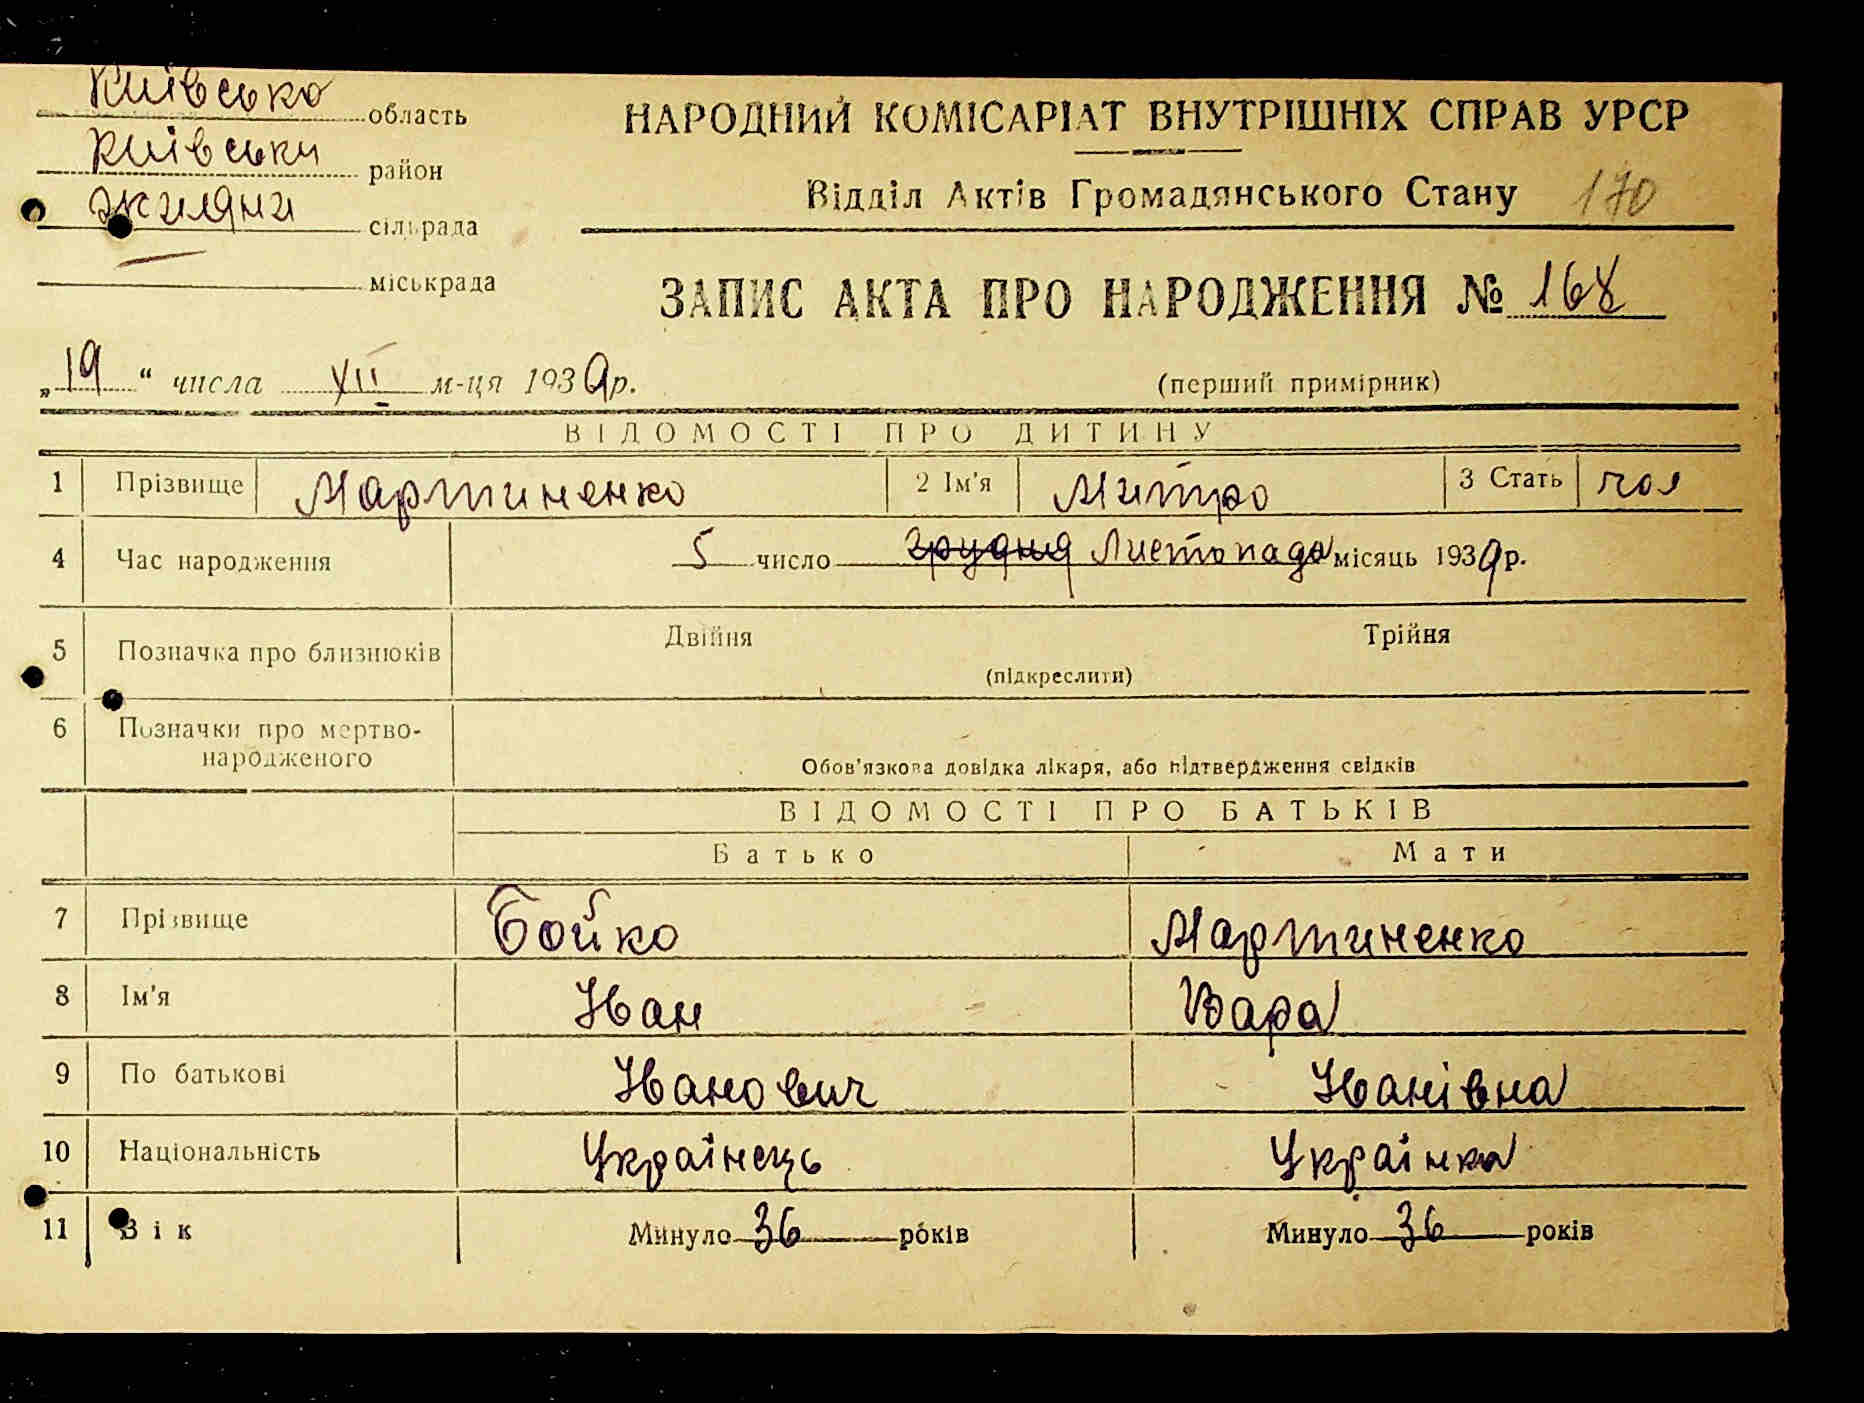 Київсько область
Київськи район
Жиляни сільрада
міськрада
НАРОДНИЙ КОМІСАРІАТ ВНУТРІШНІХ СПРАВ УРСР
Відділ Актів Громадянського Стану 170
ЗАПИС АКТА ПРО НАРОДЖЕННЯ № 168
„19“ числа XII м-ця 1939р.
(перший примірник)
ВІДОМОСТІ ПРО ДИТИНУ
1 Прізвище Мартиненко 2 Ім'я Митро 3 Стать чол
4 Час народження 5 число грудня Листопада місяць 1939р.
5 Позначка про близнюків Двійня Трійня
(підкреслити)
6 Позначки про мертво-
народженого
Обов'язкова довідка лікаря, або підтвердження свідків
ВІДОМОСТІ ПРО БАТЬКІВ
Батько Мати
7 Прізвище Бойко Мартиненко
8 Ім'я Іван Вара
9 По батькові Іванович Іванівна
10 Національність Українець Українка
11 Вік Минуло 36 років Минуло 36 років